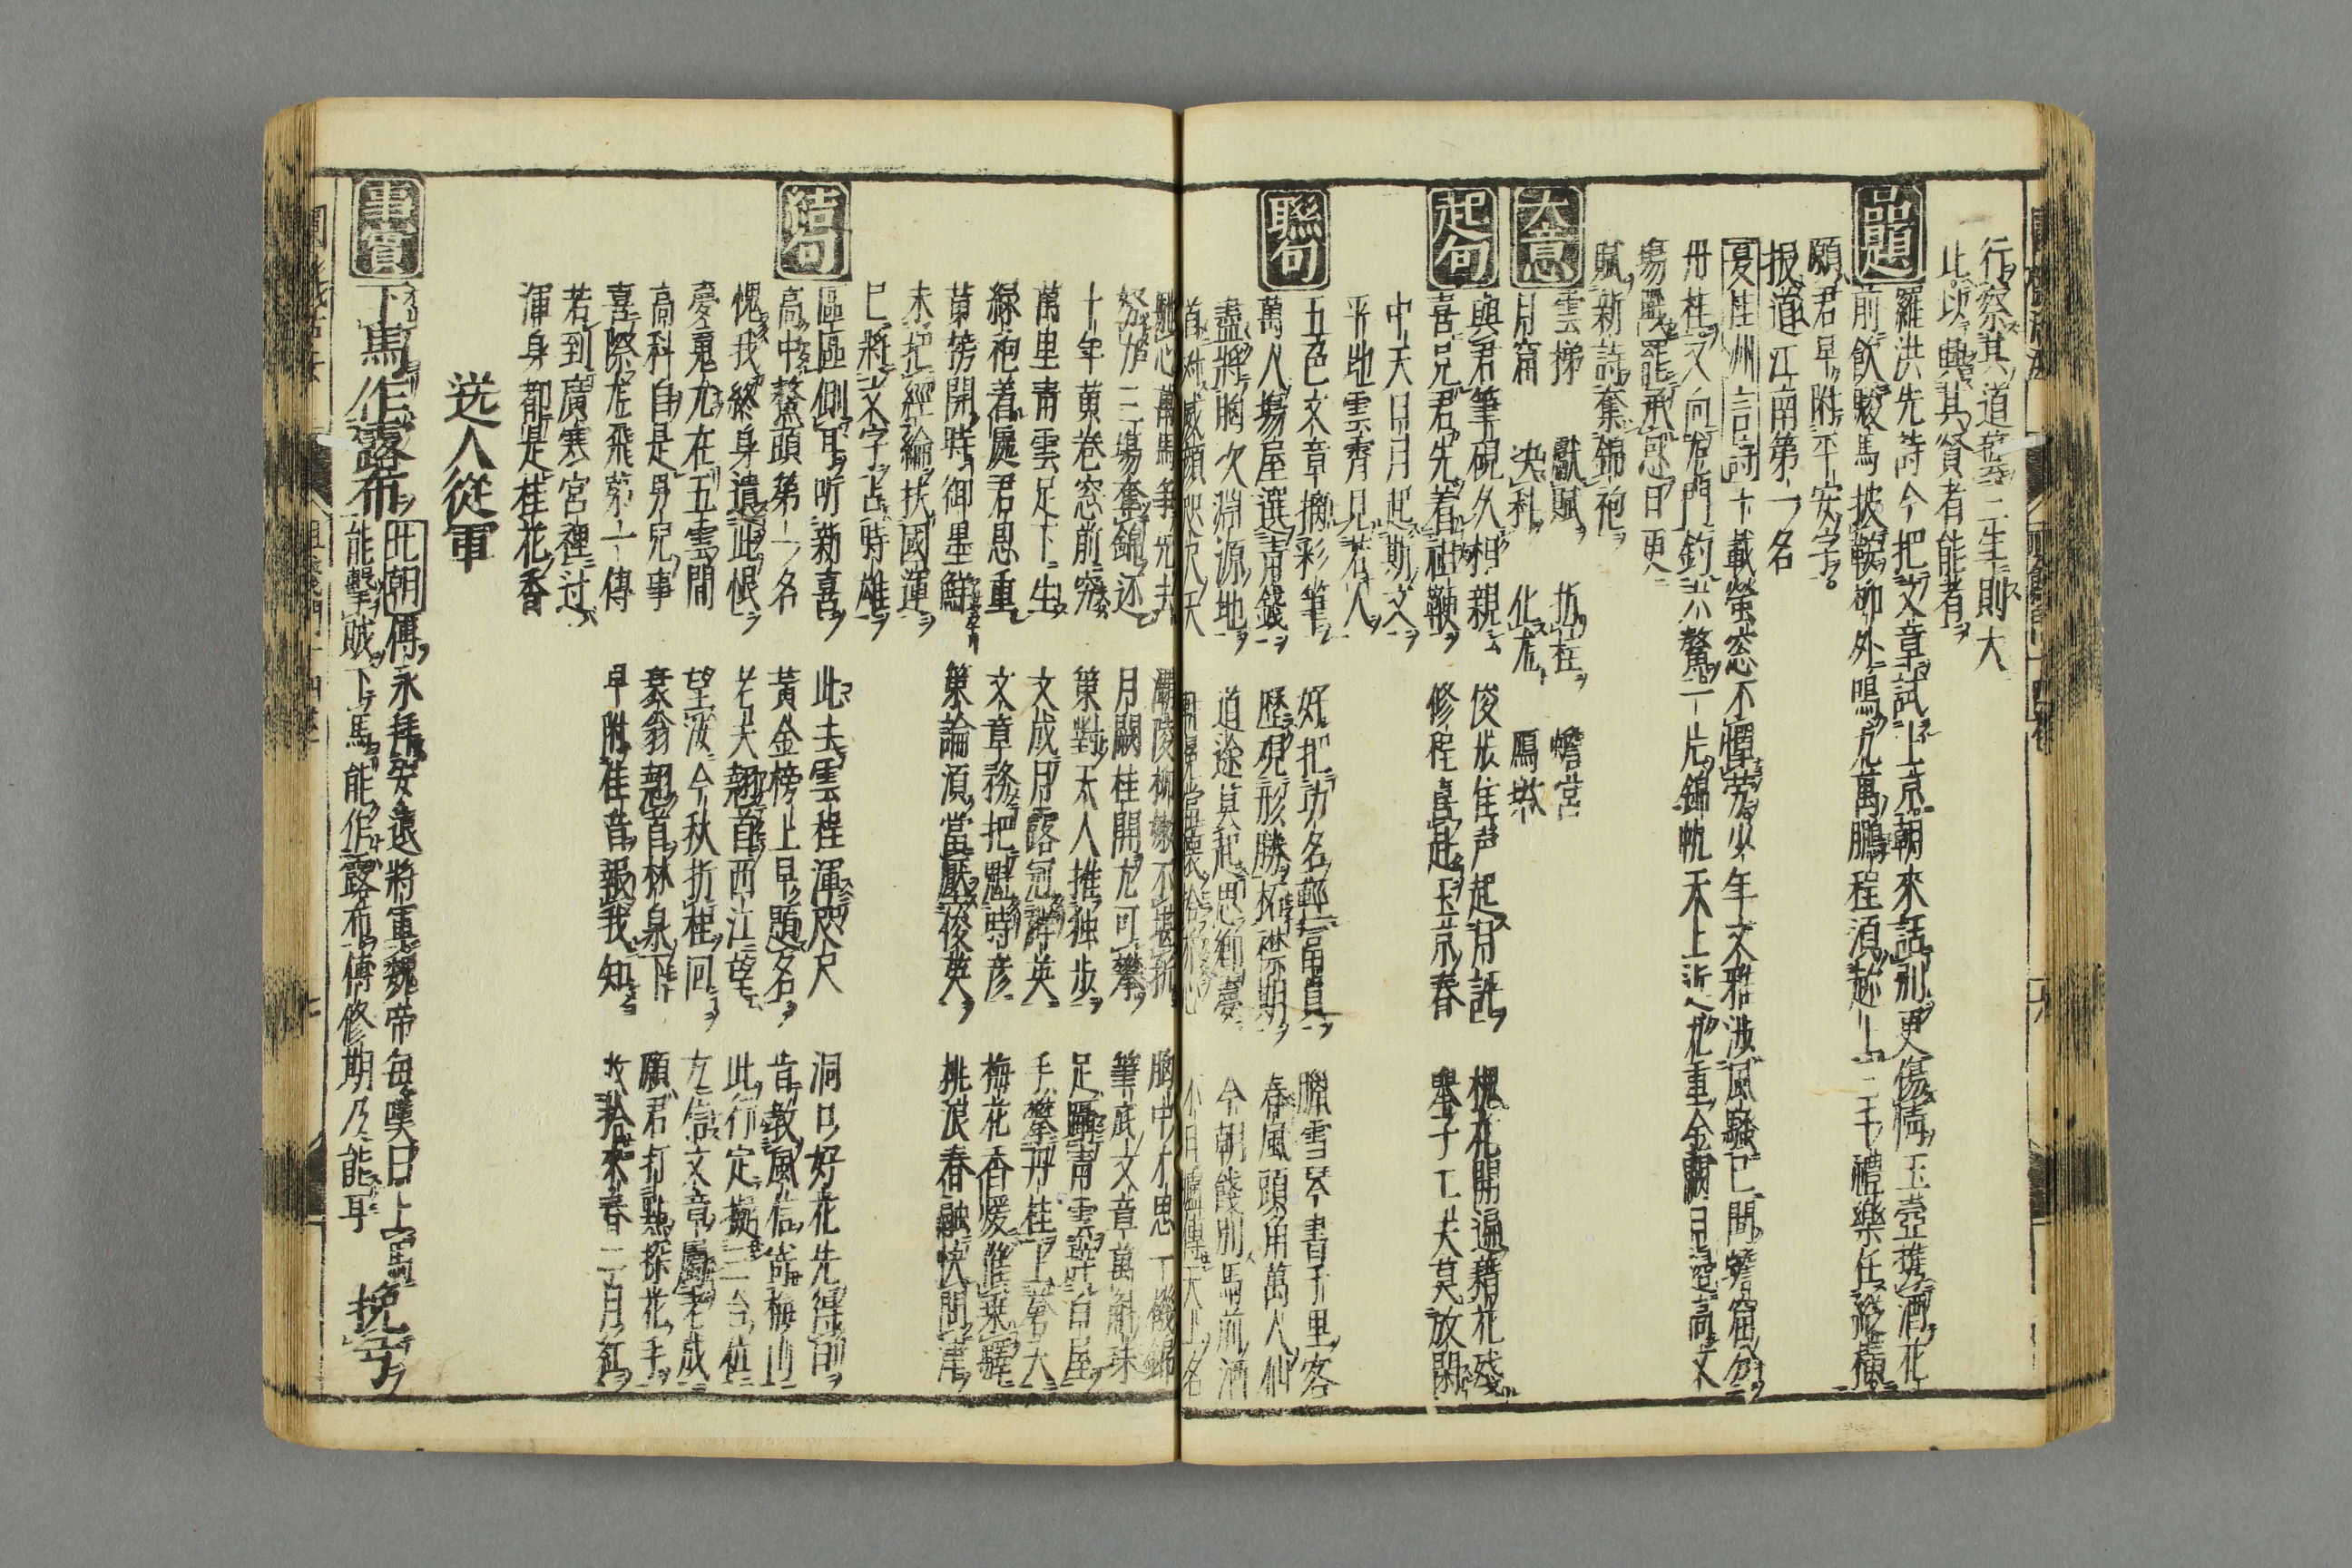 行察其道藝二年則大
此以興其賢者能者
品題
羅洪先詩今把文章試上京朝來話別更傷情玉壺携酒花
前飲駿馬披鞍柳外鳴九萬鵬程須趂上三千禮樂任縱橫
願君早附平安字
报道江南第一名
夏桂洲言詩十載螢窓不憚劳少年文雅涉風騷已聞蟾窟分
丹桂又向龙門釣六鰲一片錦帆天上近九重金闕日邉高文
場戰罷承恩日更
賦新詩奪錦袍
大意
雲梯 獻賦 折桂 蟾宮
月篇 决科 化龙 鴈塔
起句
與君筆硯久相親 俊步隹声起月評 槐花開遍藕花殘
喜兄君先着祖鞭 修程喜赴玉京春 舉子工夫莫放閑
中天日月起斯文
平地雲霄見若人
聯句
五色文章摛彩筆 好把功名輕富貴 臘雪琴書千里客
萬人場屋選青錢 歷覌形勝拓襟期 春風頭角萬人仙
盡將胸次淵源地 道途莫起思鄉夢 今朝餞別馬前酒
不日臚傳天上名
努力三場奪錦还 月闕桂開龙可攀 筆底文章萬斛珠
十年黄卷窓前究 策對太人推独步 足躡青雲辞白屋
萬里青雲足下生 文成月露冠群英 手攀丹桂上蒼天
綠袍着處君恩重 文章務把魁時彦 梅花香煖催乗驛
黄榜開時御墨鮮 策論須當壓俊英 挑浪春融快問津
未把經綸扶國運
已將文字占時雄
結句
區區側耳听新喜 此去雲程渾咫尺 洞口好花先得句
高中鰲頭第一名 黃金榜上早題名 昔教風信寄梅山
愧我終身遺此恨 老夫翹首西江望 此行定擬三台位
夢寬尤在五雲間 望汝今秋折桂回
高科自是男兒事 衰翁翹首林泉下 願君打點探花手
喜際龙飛第一傳 早附佳音報我知 收拾來春二月紅
若到廣寒宮裡过
渾身都是桂花香
送人從軍
事實
下馬作露布 北朝傅永拜安遠將軍魏帝每嘆曰上馬
能擊賊下馬能作露布傅修期乃能耳 挽弓